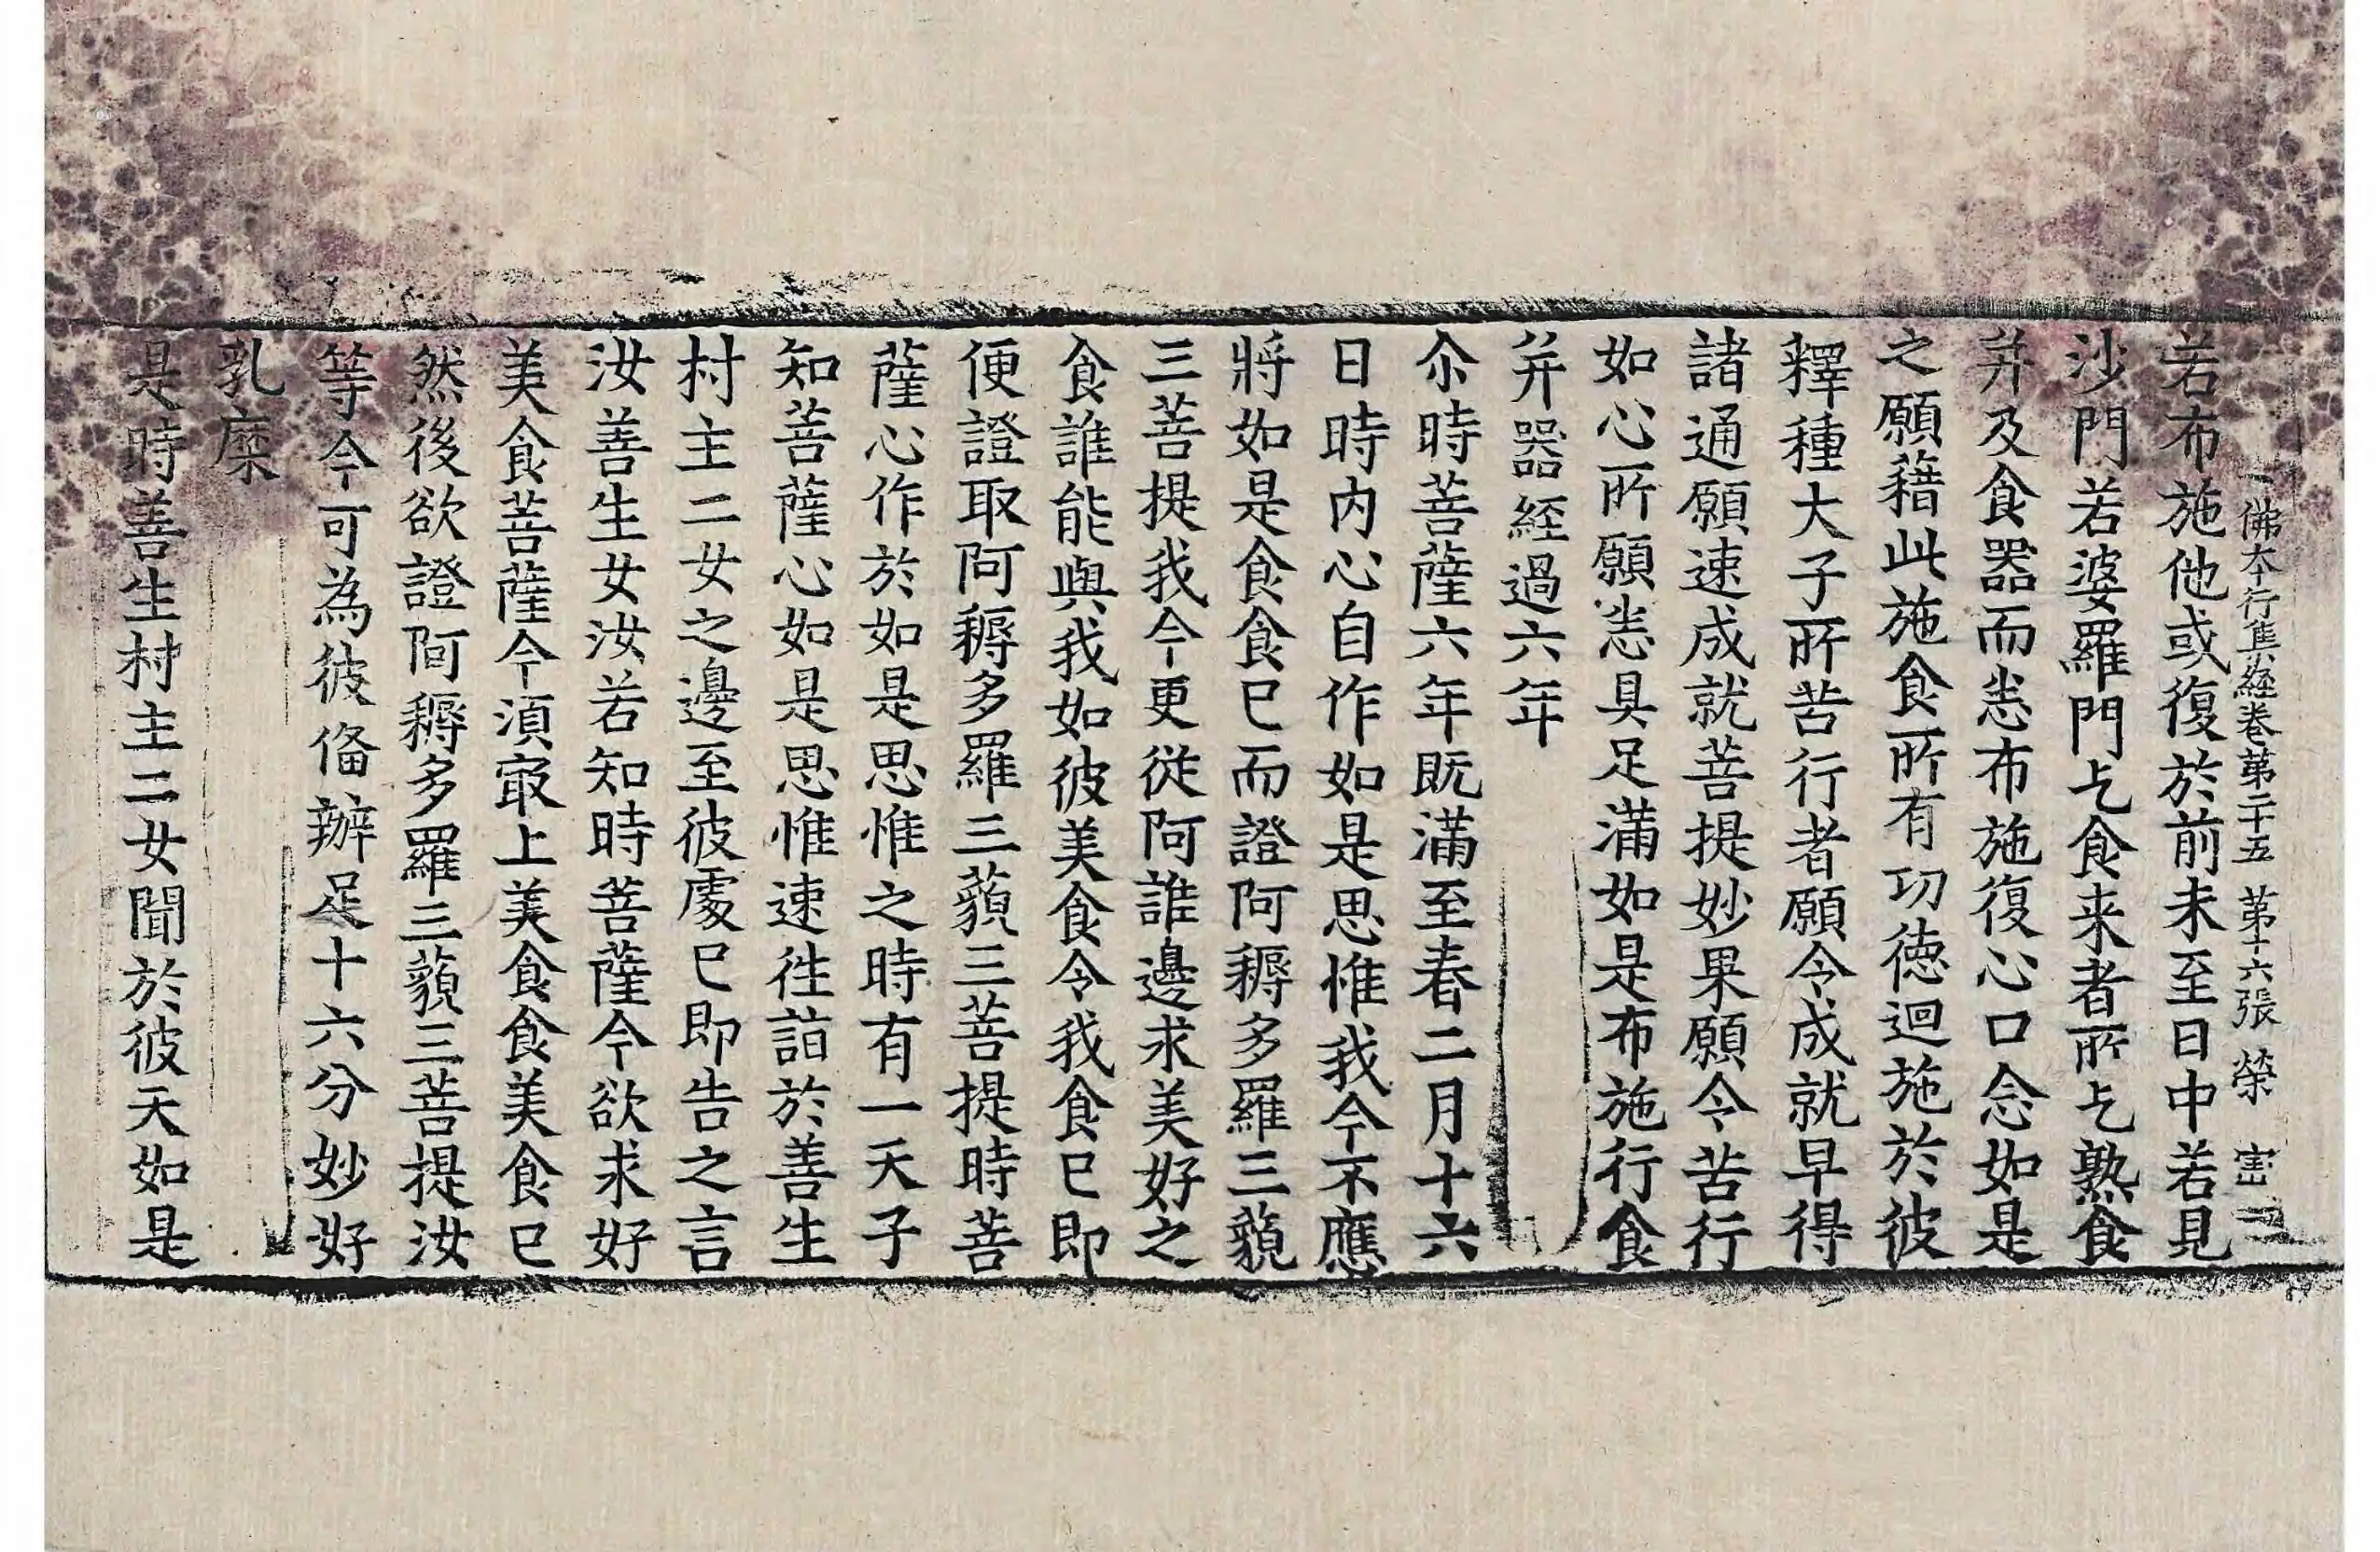 佛本行集経巻第二十五 第十六張 榮
若布施他或復於前未至日中若見
沙門若婆羅門乞食来者所乞熟食
并及食器而恙布施復心口念如是
之願藉此施食所有功徳迴施於彼
釋種大子所苦行者願令成就早得
諸通願速成就菩提妙果願令苦行
如心所願恙具足滿如是布施行食
并器経過六年
尒時菩薩六年既滿至春二月十六
日時内心自作如是思惟我今不應
將如是食食已而證阿耨多羅三藐
三菩提我今更従阿誰邊求美好之
食誰能與我如彼美食令我食已即
便證取阿耨多羅三藐三菩提時菩
薩心作於如是思惟之時有一天子
知菩薩心如是思惟速往詣於善生
村主二女之邊至彼處已即告之言
汝善生女汝若知時菩薩今欲求好
美食菩薩今湏冣上美食食美食已
然後欲證阿耨多羅三藐三菩提汝
等今可為彼俻辦足十六分妙好
乳糜
是時善生村主二女聞於彼天如是